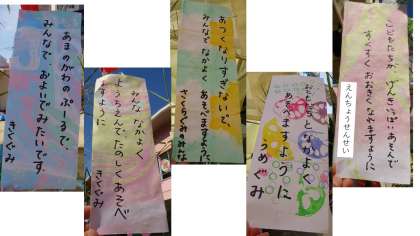 あまのがわのぷーるで、
みんなで およいでみたいです。
きくぐみ
みんな なかよく
ようちえんで たのしくあそべ
ますように
きくぐみ
あつくなりすぎないで、
みんなで なかよく あそべますように。
さくらぐみ みんな
おともだちと なかよく
あそべますように
うめぐみ
こどもたちが げんきいっぱい あそんで
すくすく おおきく なれますように
えんちょうせんせい